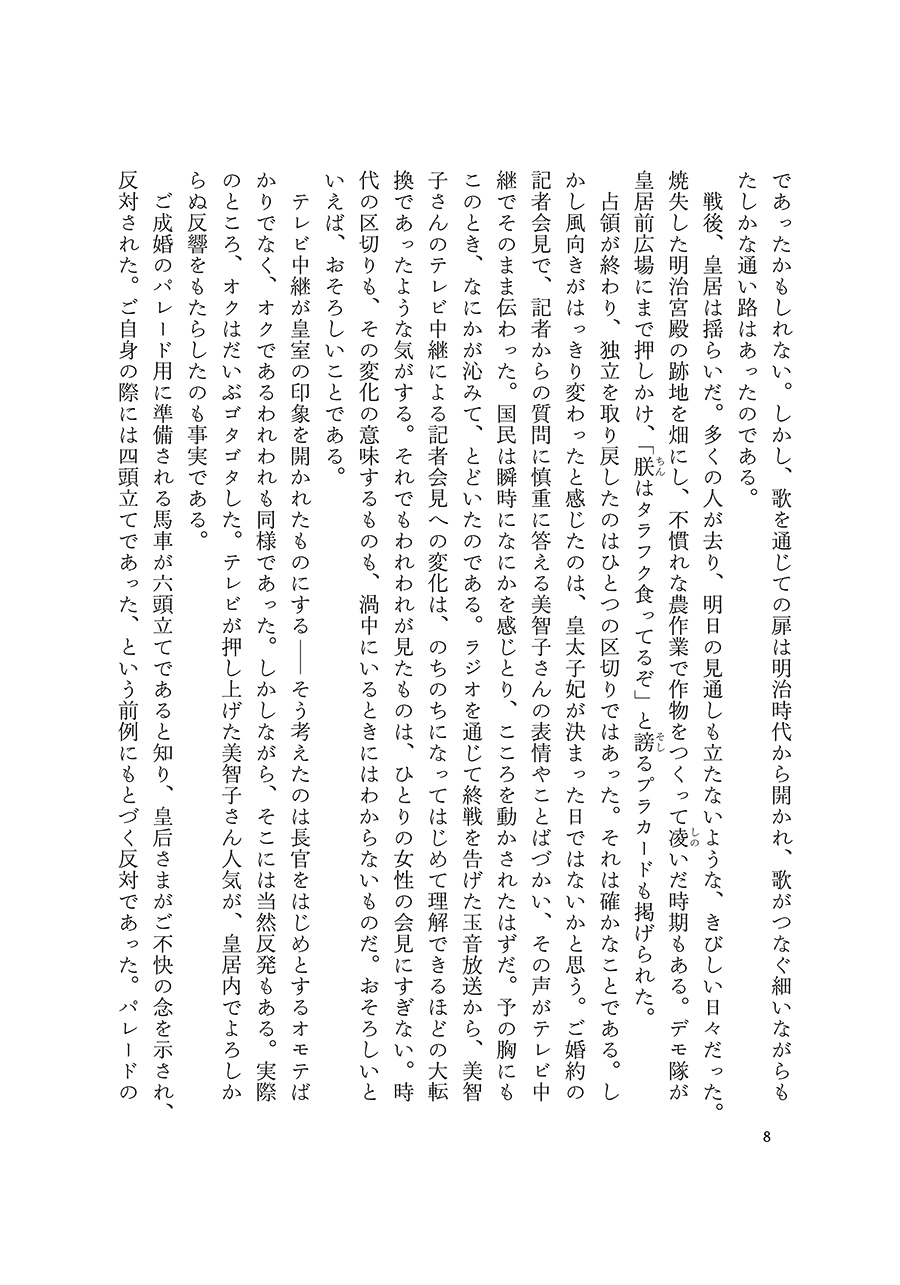 であったかもしれない。しかし、歌を通じての扉は明治時代から開かれ、歌がつなぐ細いながらも
たしかな通い路はあったのである。
戦後、皇居は揺らいだ。多くの人が去り、明日の見通しも立たないような、きびしい日々だった。
焼失した明治宮殿の跡地を畑にし、不慣れな農作業で作物をつくって凌いだ時期もある。デモ隊が
皇居前広場にまで押しかけ、「朕はタラフク食ってるぞ」と謗るプラカードも掲げられた。
占領が終わり、独立を取り戻したのはひとつの区切りではあった。それは確かなことである。し
かし風向きがはっきり変わったと感じたのは、皇太子妃が決まった日ではないかと思う。ご婚約の
記者会見で、記者からの質問に慎重に答える美智子さんの表情やことばづかい、その声がテレビ中
継でそのまま伝わった。国民は瞬時になにかを感じとり、こころを動かされたはずだ。予の胸にも
このとき、なにかが沁みて、とどいたのである。ラジオを通じて終戦を告げた玉音放送から、美智
子さんのテレビ中継による記者会見への変化は、のちのちになってはじめて理解できるほどの大転
換であったような気がする。それでもわれわれが見たものは、ひとりの女性の会見にすぎない。時
代の区切りも、その変化の意味するものも、渦中にいるときにはわからないものだ。おそろしいと
いえば、おそろしいことである。
テレビ中継が皇室の印象を開かれたものにする――そう考えたのは長官をはじめとするオモテば
かりでなく、オクであるわれわれも同様であった。しかしながら、そこには当然反発もある。実際
のところ、オクはだいぶゴタゴタした。テレビが押し上げた美智子さん人気が、皇居内でよろしか
らぬ反響をもたらしたのも事実である。
ご成婚のパレード用に準備される馬車が六頭立てであると知り、皇后さまがご不快の念を示され、
反対された。ご自身の際には四頭立てであった、という前例にもとづく反対であった。パレードの
8